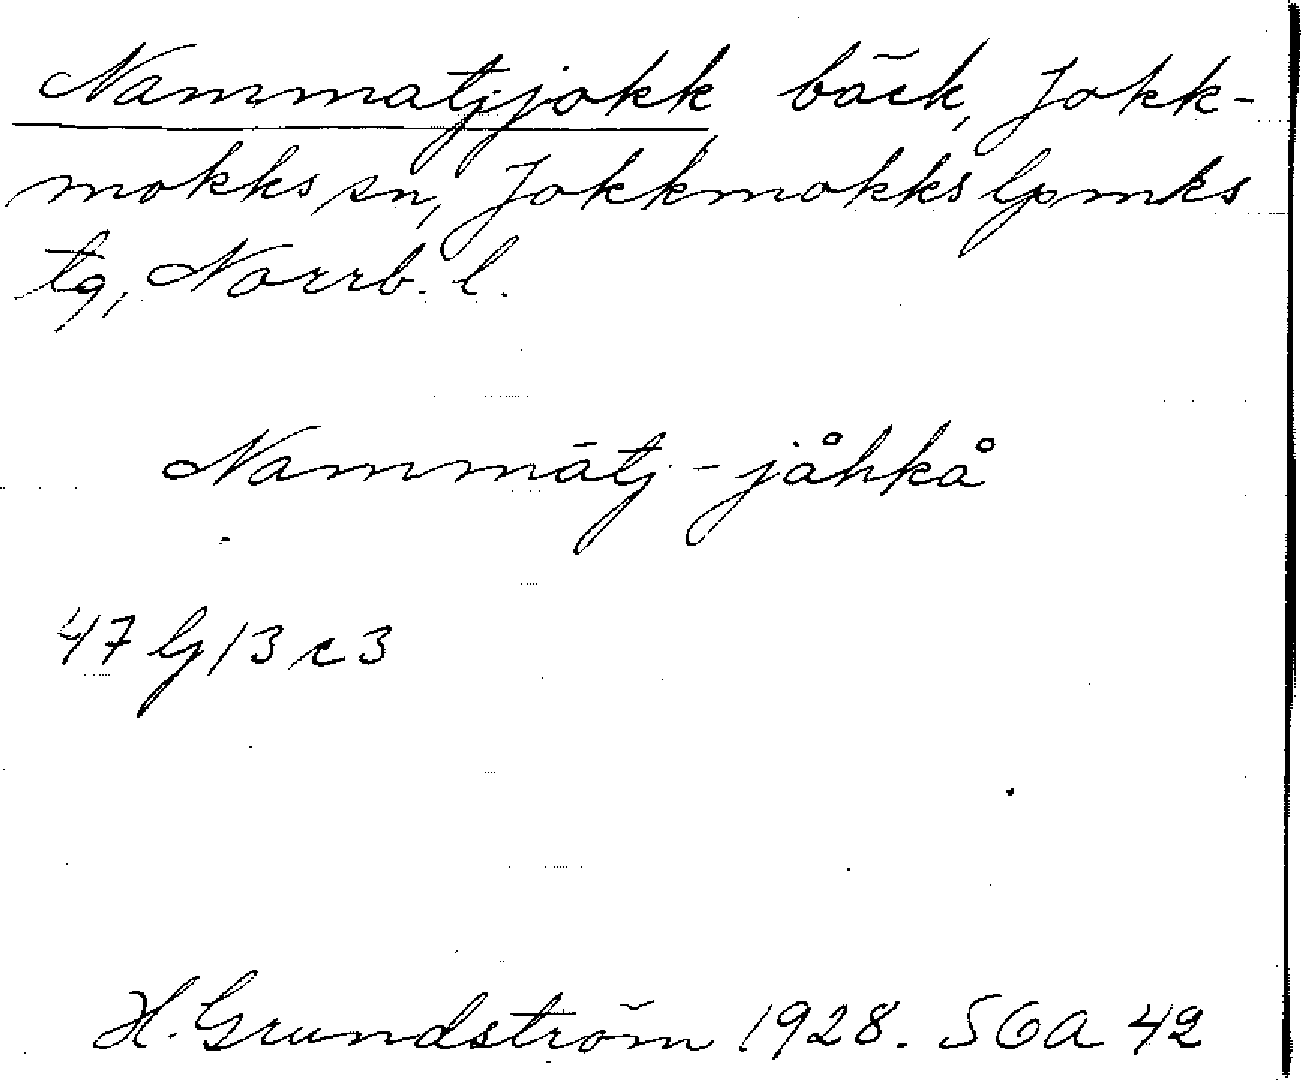 Nammatjjokk bäck, Jokk-
mokks sn, Jokkmokks lpmks
tg, Norrb. l.
Nammātj-jåhkå
47 G/3 c 3
H. Grundström 1928. SOA 42